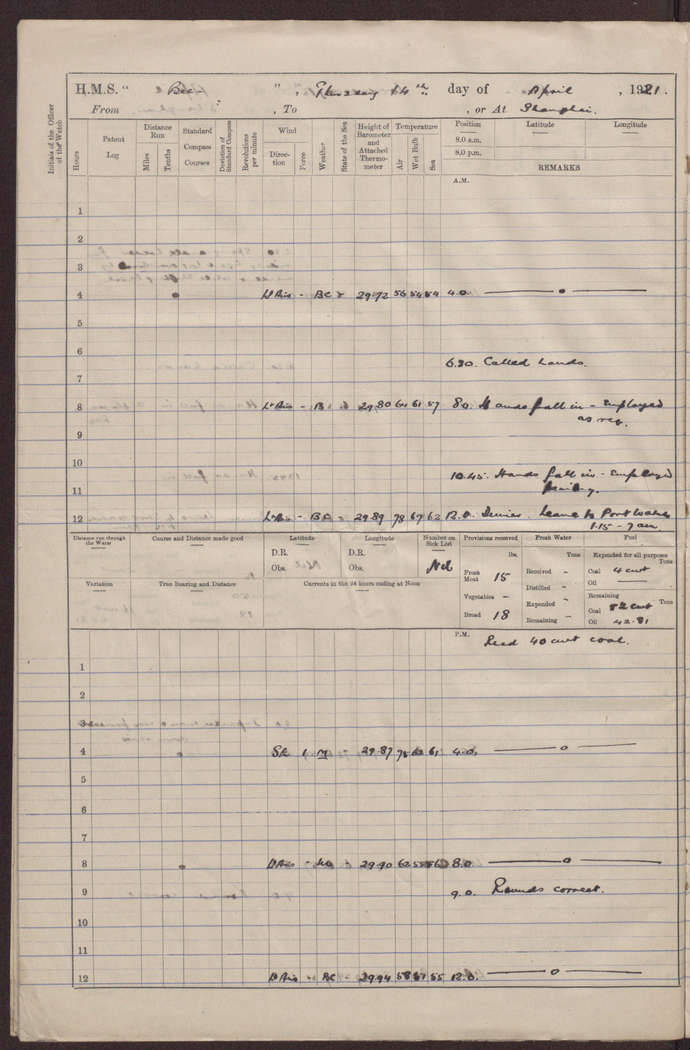 H.M.S. " Bee " , Thursday 14th day of April , 1921.
From , To , or At Shanghai.
Initials of the Officer of the Watch
Hours
Patent Log
Distance Run
Miles
Tenths
Standard Compass Courses
Deviation of Standard Compass
Revolutions per minute
Wind
Direction
Force
Weather
State of the Sea
Height of Barometer and Attached Thermometer
Temperature
Air
Wet Bulb
Sea
Position Latitude Longitude
8.0 a.m.
8.0 p.m.
REMARKS
A.M.
1
2
3
4 Lt Airs - BC 29.72 56 54 54 4.0. — o —
5
6
6.30. Called hands.
7
8 Lt Airs - B 29.80 64 61 57 8.0. Hands fall in - Employed
as req.
9
10
10.45. Hands fall in - Employed
11
12 Lt Airs - BC 29.89 78 67 62 12.0. Dinner. Leave to Port Watch
1.15 - 7 am
Distance run through the Water
Course and Distance made good
Latitude
D.R.
Obs.
Longitude
D.R.
Obs.
Number on Sick List
Nil
Provisions received
lbs.
Fresh Meat 15
Vegetables -
Bread 18
Fresh Water
Tons
Received -
Distilled -
Expended -
Remaining -
Fuel
Expended for all purposes
Tons
Coal 4 cwt
Oil —
Remaining
Tons
Coal 82 cwt
Oil 42.81
Variation
True Bearing and Distance
Currents in the 24 hours ending at Noon
P.M.
Recd 40 cwt coal.
1
2
3
4 SE 1 M - 29.87 75 61 4.0. — o —
5
6
7
8 Lt Airs - 29.90 62 8.0 — o —
9 9.0. Rounds correct.
10
11
12 Lt Airs - BC - 29.94 58 57 55 12.0. — o —